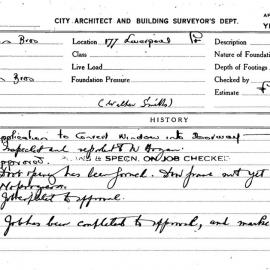 CITY ARCHITECT AND BUILDING SURVEYOR'S DEPT.
Bros Location 177 Liverpool St Description
Class Nature of Foundation
Live Load Depth of Footings
Bros Foundation Pressure Checked by
(Walker Smiths) Estimate
HISTORY
application to Convert Window into Doorway
Inspected and reported to
approved. & SPECN. ON JOB CHECKED
Door opening has been formed. Door frame not yet
No progress.
to approval.
Job has been completed to approval, and